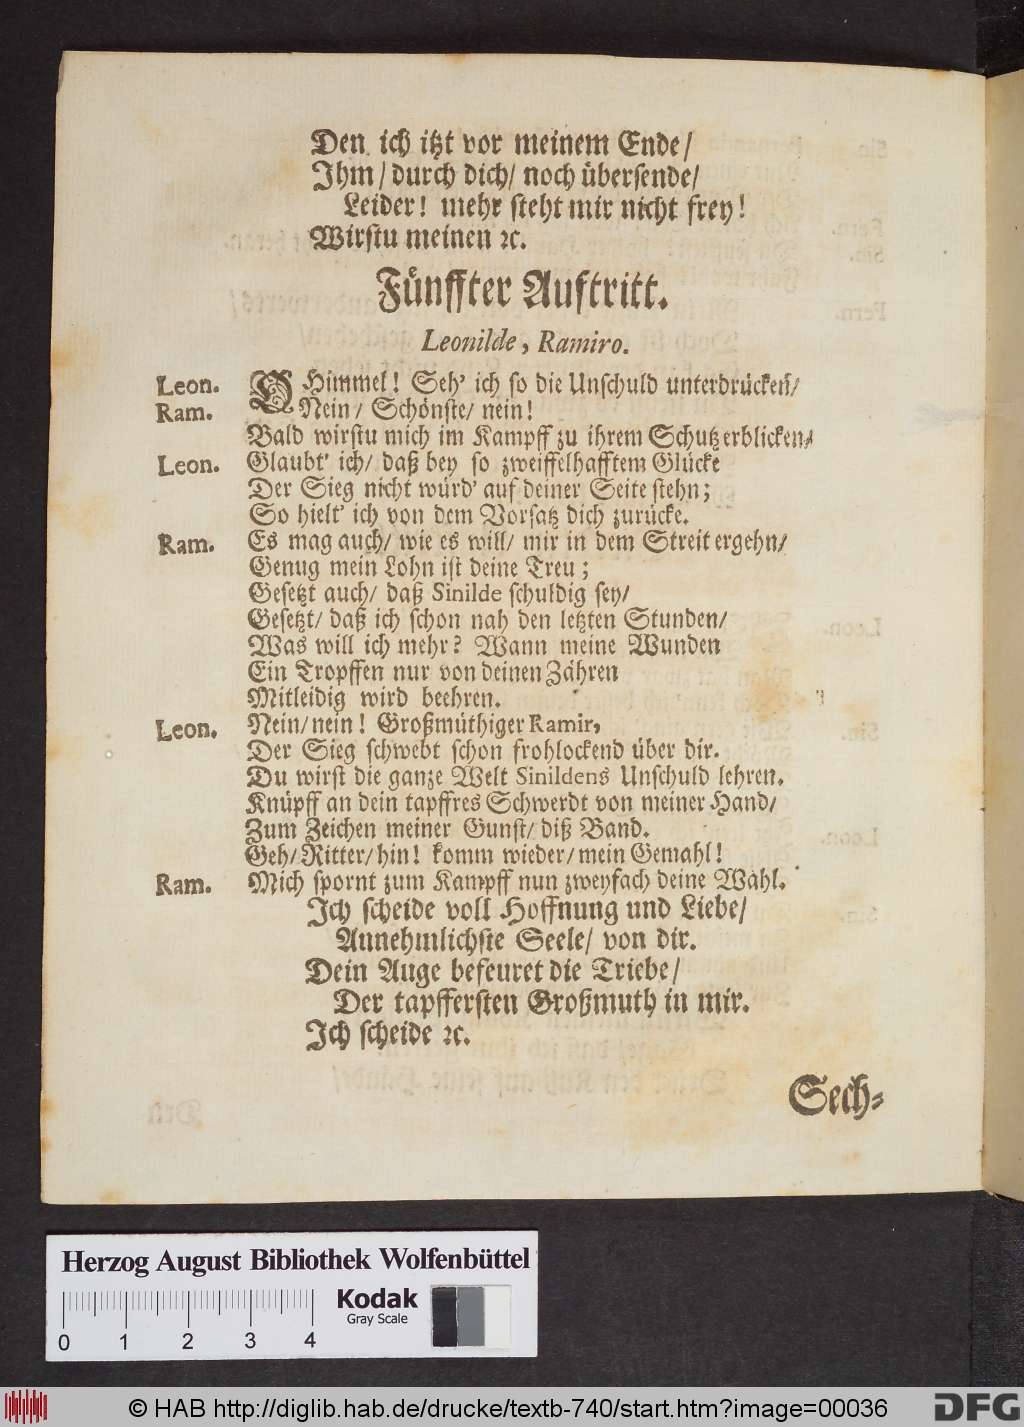 Den ich itzt vor meinem Ende/
Ihm/ durch dich/ noch übersende/
Leider! mehr steht mir nicht frey!
Wirstu meinen ꝛc.
Fünffter Auftritt.
Leonilde, Ramiro.
Leon. O Himmel! Seh' ich so die Unschuld unterdrücken/
Ram. Nein/ Schönste/ nein!
Bald wirstu mich im Kampff zu ihrem Schutz erblicken.
Leon. Glaubt' ich/ daß bey so zweiffelhafftem Glücke
Der Sieg nicht würd' auf deiner Seite stehn;
So hielt' ich von dem Vorsatz dich zurücke.
Ram. Es mag auch/ wie es will/ mir in dem Streit ergehn/
Genug mein Lohn ist deine Treu;
Gesetzt auch/ daß Sinilde schuldig sey/
Gesetzt/ daß ich schon nah den letzten Stunden/
Was will ich mehr? Wann meine Wunden
Ein Tropffen nur von deinen Zähren
Mitleidig wird beehren.
Leon. Nein/ nein! Großmüthiger Ramir,
Der Sieg schwebt schon frohlockend über dir.
Du wirst die ganze Welt Sinildens Unschuld lehren.
Knüpff an dein tapffres Schwerdt von meiner Hand/
Zum Zeichen meiner Gunst/ diß Band.
Geh/ Ritter/ hin! komm wieder/ mein Gemahl!
Ram. Mich spornt zum Kampff nun zweyfach deine Wahl.
Ich scheide voll Hoffnung und Liebe/
Annehmlichste Seele/ von dir.
Dein Auge befeuret die Triebe/
Der tapffersten Großmuth in mir.
Ich scheide ꝛc.
Sech-
Herzog August Bibliothek Wolfenbüttel
Kodak
Gray Scale
0 1 2 3 4
© HAB http://diglib.hab.de/drucke/textb-740/start.htm?image=00036
DFG